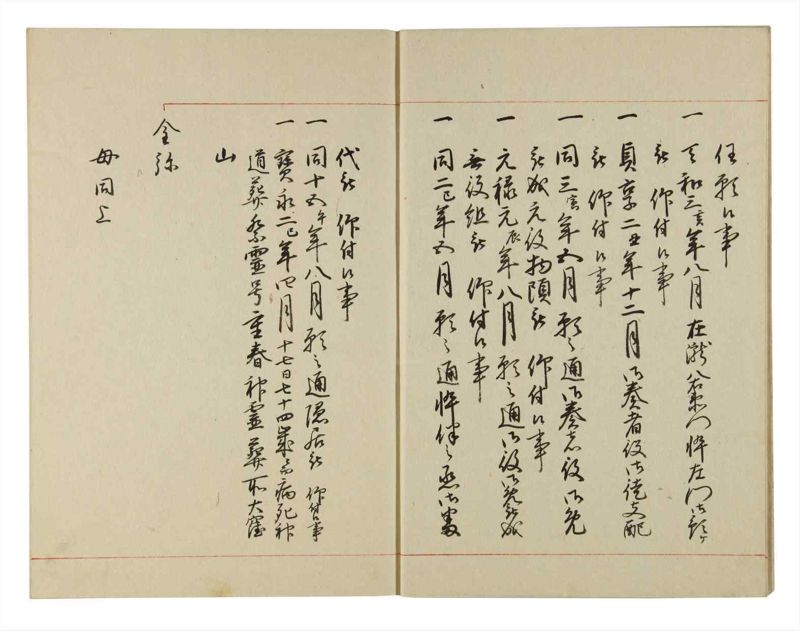 任願候事
一 天和三亥年八月 在 八右衛門悴左門
被 仰付候事
一 貞享二丑年十二月御奏者役御徒支配
被 仰付候事
一 同三寅年五月願之通御奏者役御免
被成元役物頭被 仰付候事
一 元禄元辰年八月願之通御役御免被成
無役組被 仰付候事
一 同二巳年五月願之通悴
代被 仰付候事
一 同十五午年八月願之通隠居被 仰付候事
一 寳永二巳年四月十七日七十四歳ニ而病死神
道葬祭霊号重春神霊葬所大窪
山
全弥
母同上